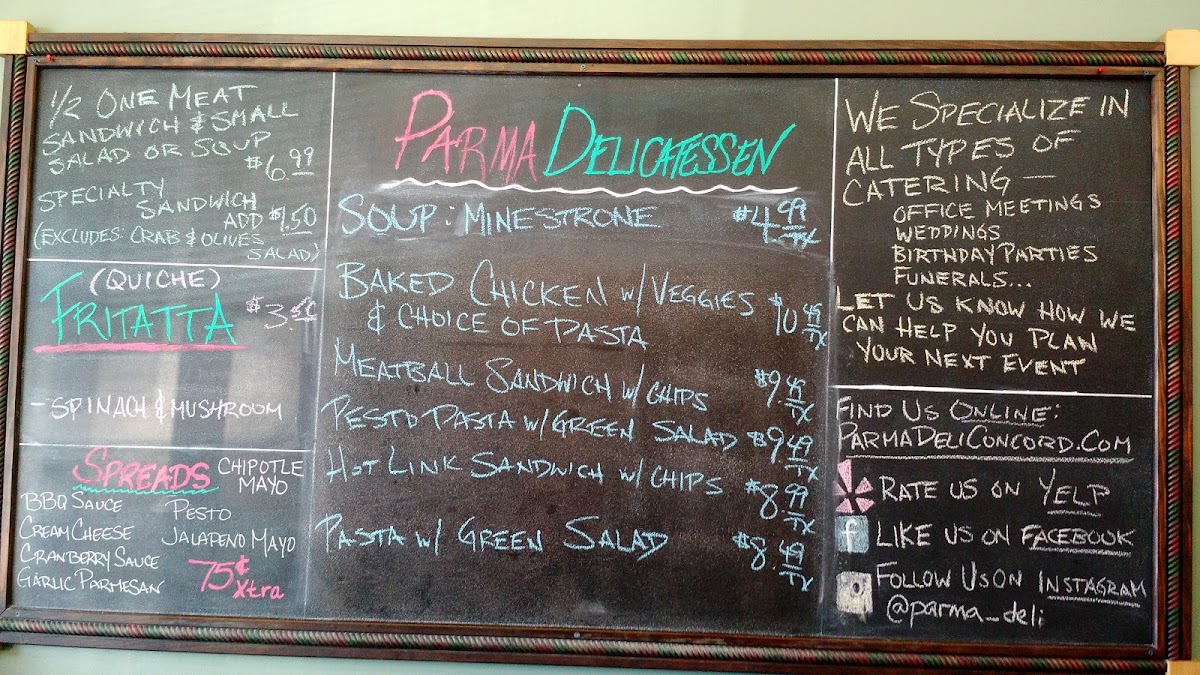 1/2 ONE MEAT
SANDWICH & SMALL
SALAD OR SOUP
$6.99
SPECIALTY
SANDWICH
ADD $1.50
(EXCLUDES: CRAB & OLIVES
SALAD)
(QUICHE)
FRITATTA
$3.
- SPINACH & MUSHROOM
SPREADS
CHIPOTLE
MAYO
BBQ SAUCE
CREAM CHEESE
CRANBERRY SAUCE
GARLIC PARMESAN
PESTO
JALAPENO MAYO
75¢
Xtra
PARMA DELICATESSEN
SOUP: MINESTRONE $4.99 TX
BAKED CHICKEN W/ VEGGIES
& CHOICE OF PASTA $10.49 TX
MEATBALL SANDWICH W/ CHIPS $9.49 TX
PESTO PASTA W/ GREEN SALAD $9.49 TX
HOT LINK SANDWICH W/ CHIPS $8.99 TX
PASTA W/ GREEN SALAD $8.49 TX
WE SPECIALIZE IN
ALL TYPES OF
CATERING —
OFFICE MEETINGS
WEDDINGS
BIRTHDAY PARTIES
FUNERALS...
LET US KNOW HOW WE
CAN HELP YOU PLAN
YOUR NEXT EVENT
FIND US ONLINE:
PARMADELICONCORD.COM
RATE US ON YELP
f LIKE US ON FACEBOOK
FOLLOW US ON INSTAGRAM
@parma_deli